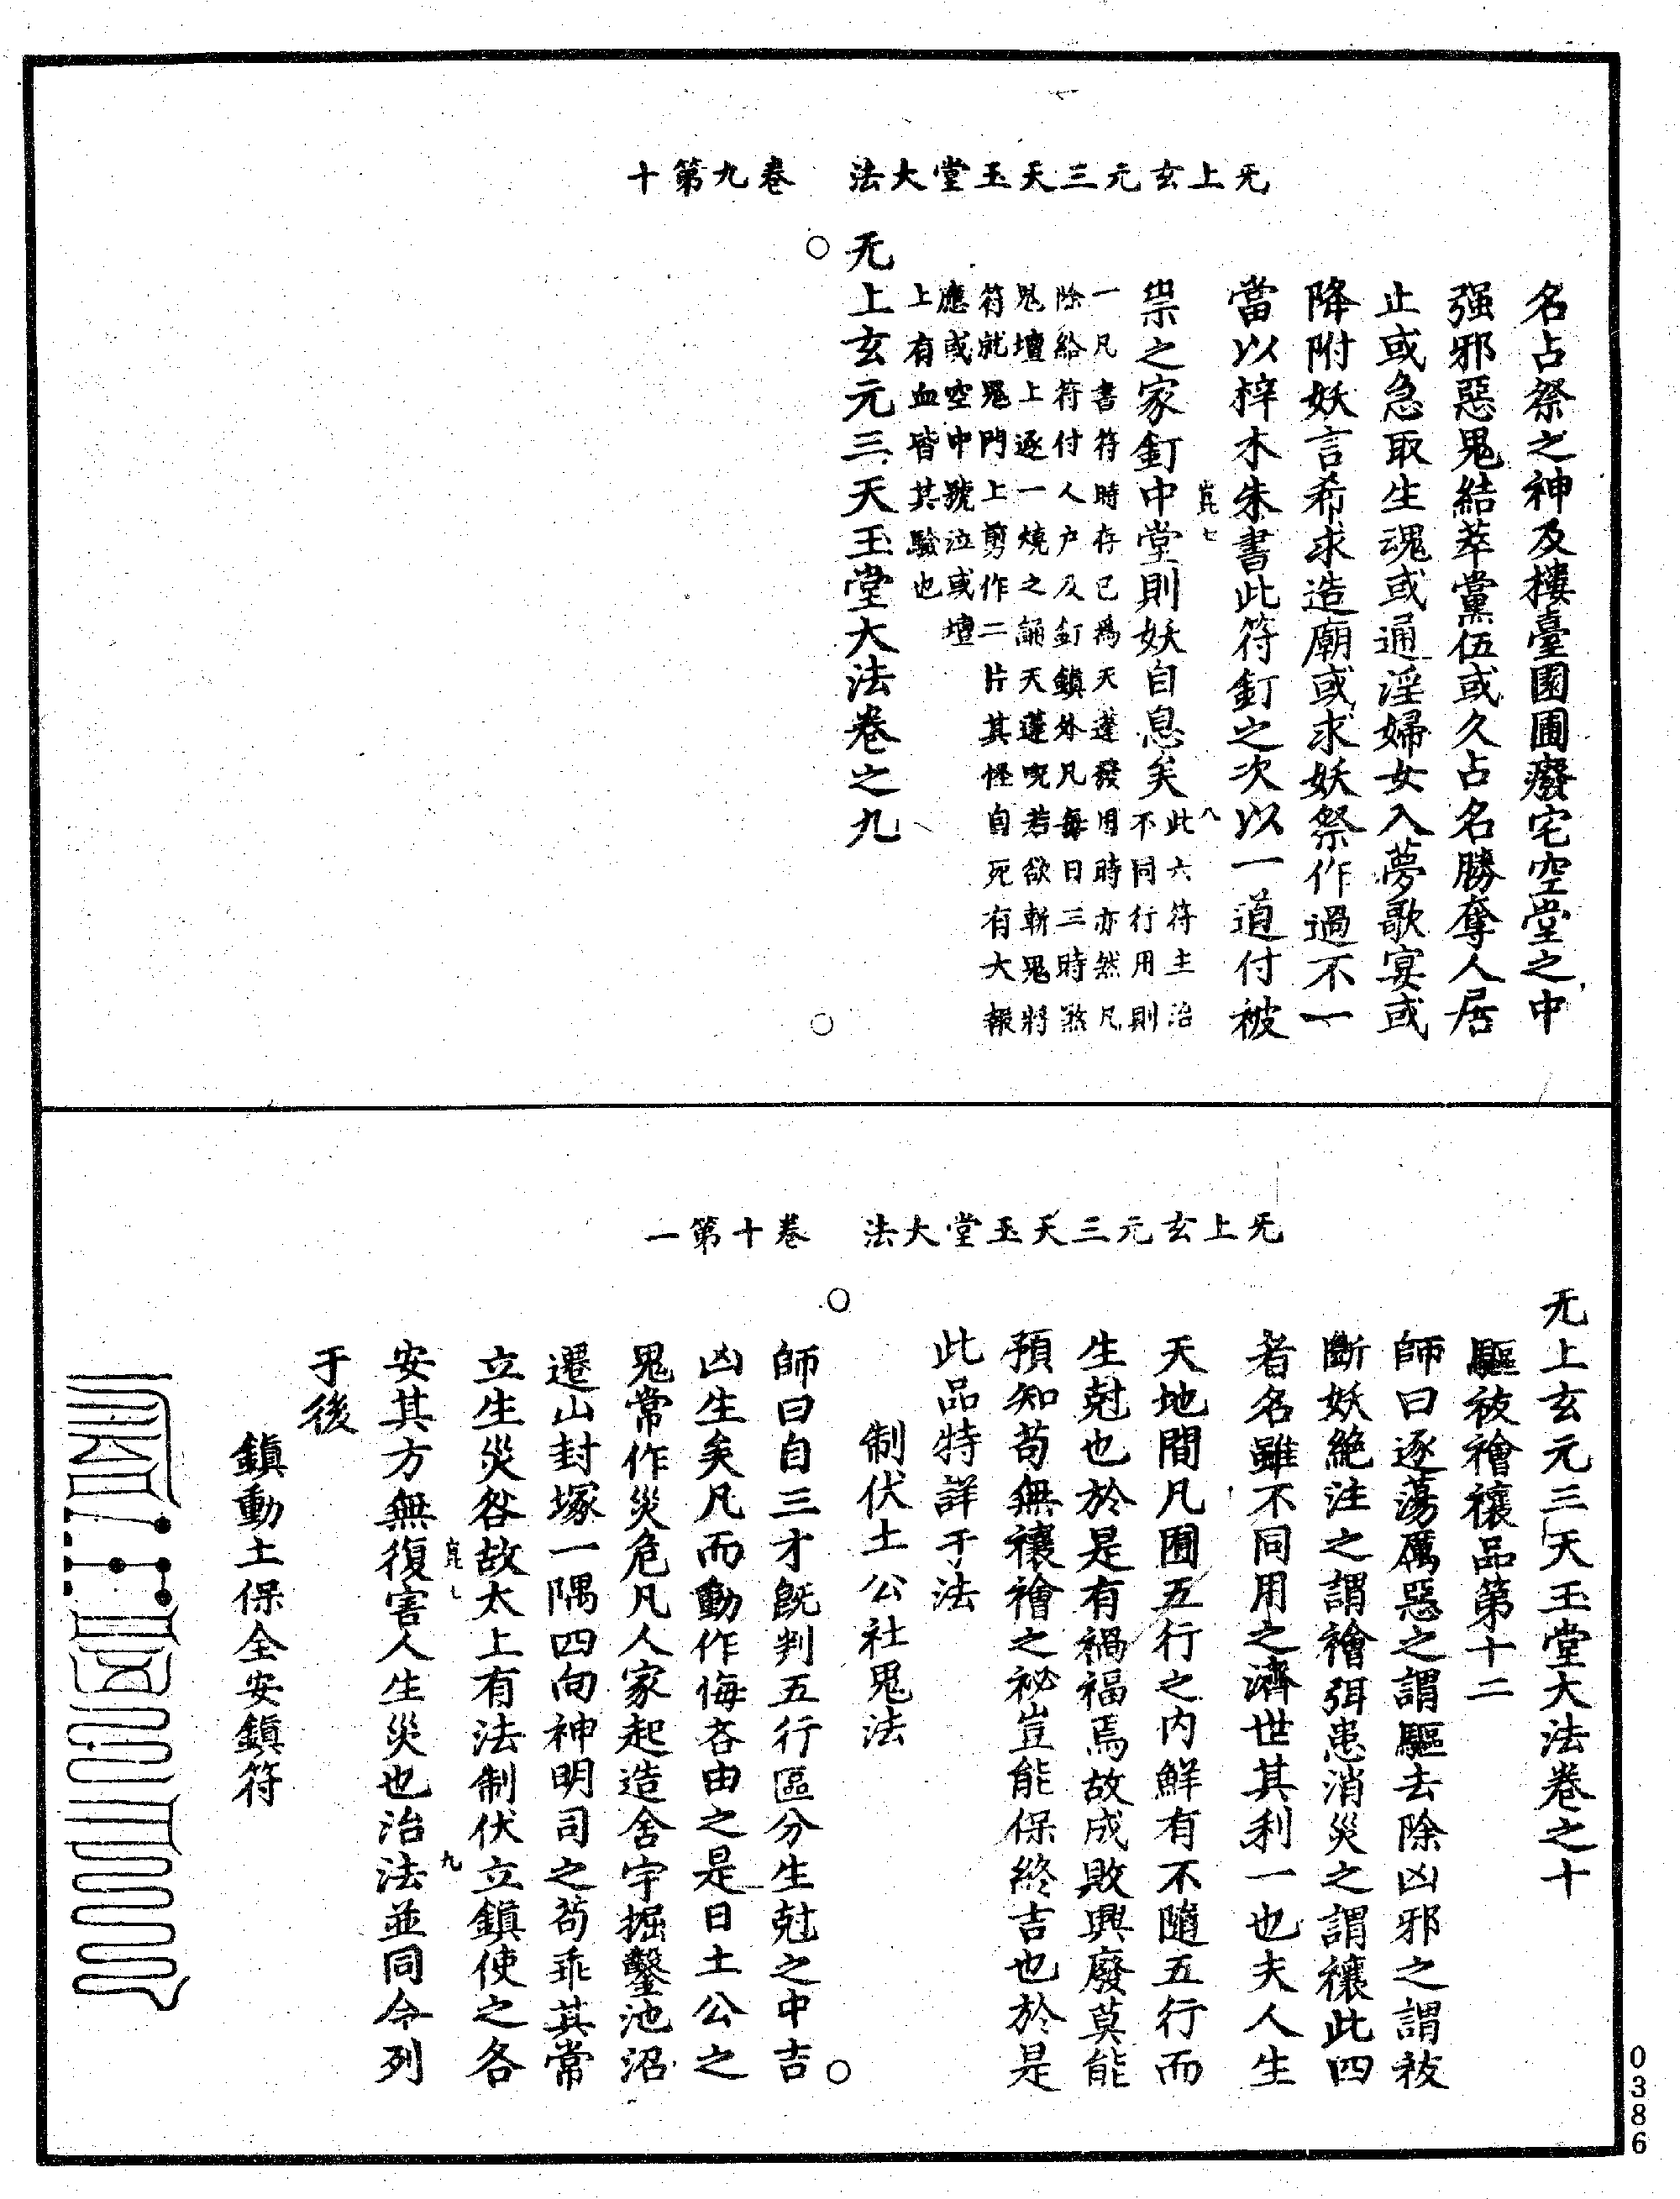 无上玄元三天玉堂大法　卷九第十
名占祭之神及樓臺園圃癈宅空堂之中
强邪惡鬼結萃黨伍或久占名勝奪人居
止或急取生魂或通淫婦女入夢歌宴或
降附妖言希求造廟或求妖祭作過不一
當以梓木朱書此符釘之次以一道付被
祟之家釘中堂則妖自息矣此六符主治
不同行用則
一凡書符時存已爲天蓬發用時亦然凡
除給符付人户及釘鎮外凡每日三時煞
鬼壇上逐一燒之誦天蓬呪若欲斬鬼將
符就鬼門上剪作二片其怪自死有大報
應或空中號泣或壇
上有血皆其驗也
无上玄元三天玉堂大法卷之九
无上玄元三天玉堂大法　卷十第一
无上玄元三天玉堂大法卷之十
驅祓禬禳品第十二
師曰逐蕩厲惡之謂驅去除凶邪之謂祓
斷妖絶注之謂禬弭患消災之謂禳此四
者名雖不同用之濟世其利一也夫人生
天地間凡囿五行之内鮮有不隨五行而
生尅也於是有禍福焉故成敗興廢莫能
預知苟無禳禬之祕豈能保終吉也於是
此品特詳于法
制伏土公社鬼法
師曰自三才旣判五行區分生尅之中吉
凶生矣凡而動作侮吝由之是日土公之
鬼常作災危凡人家起造舍宇掘鑿池沼
遷山封塚一隅四向神明司之苟乖其常
立生災咎故太上有法制伏立鎮使之各
安其方無復害人生災也治法並同今列
于後
鎮動土保全安鎮符
0386